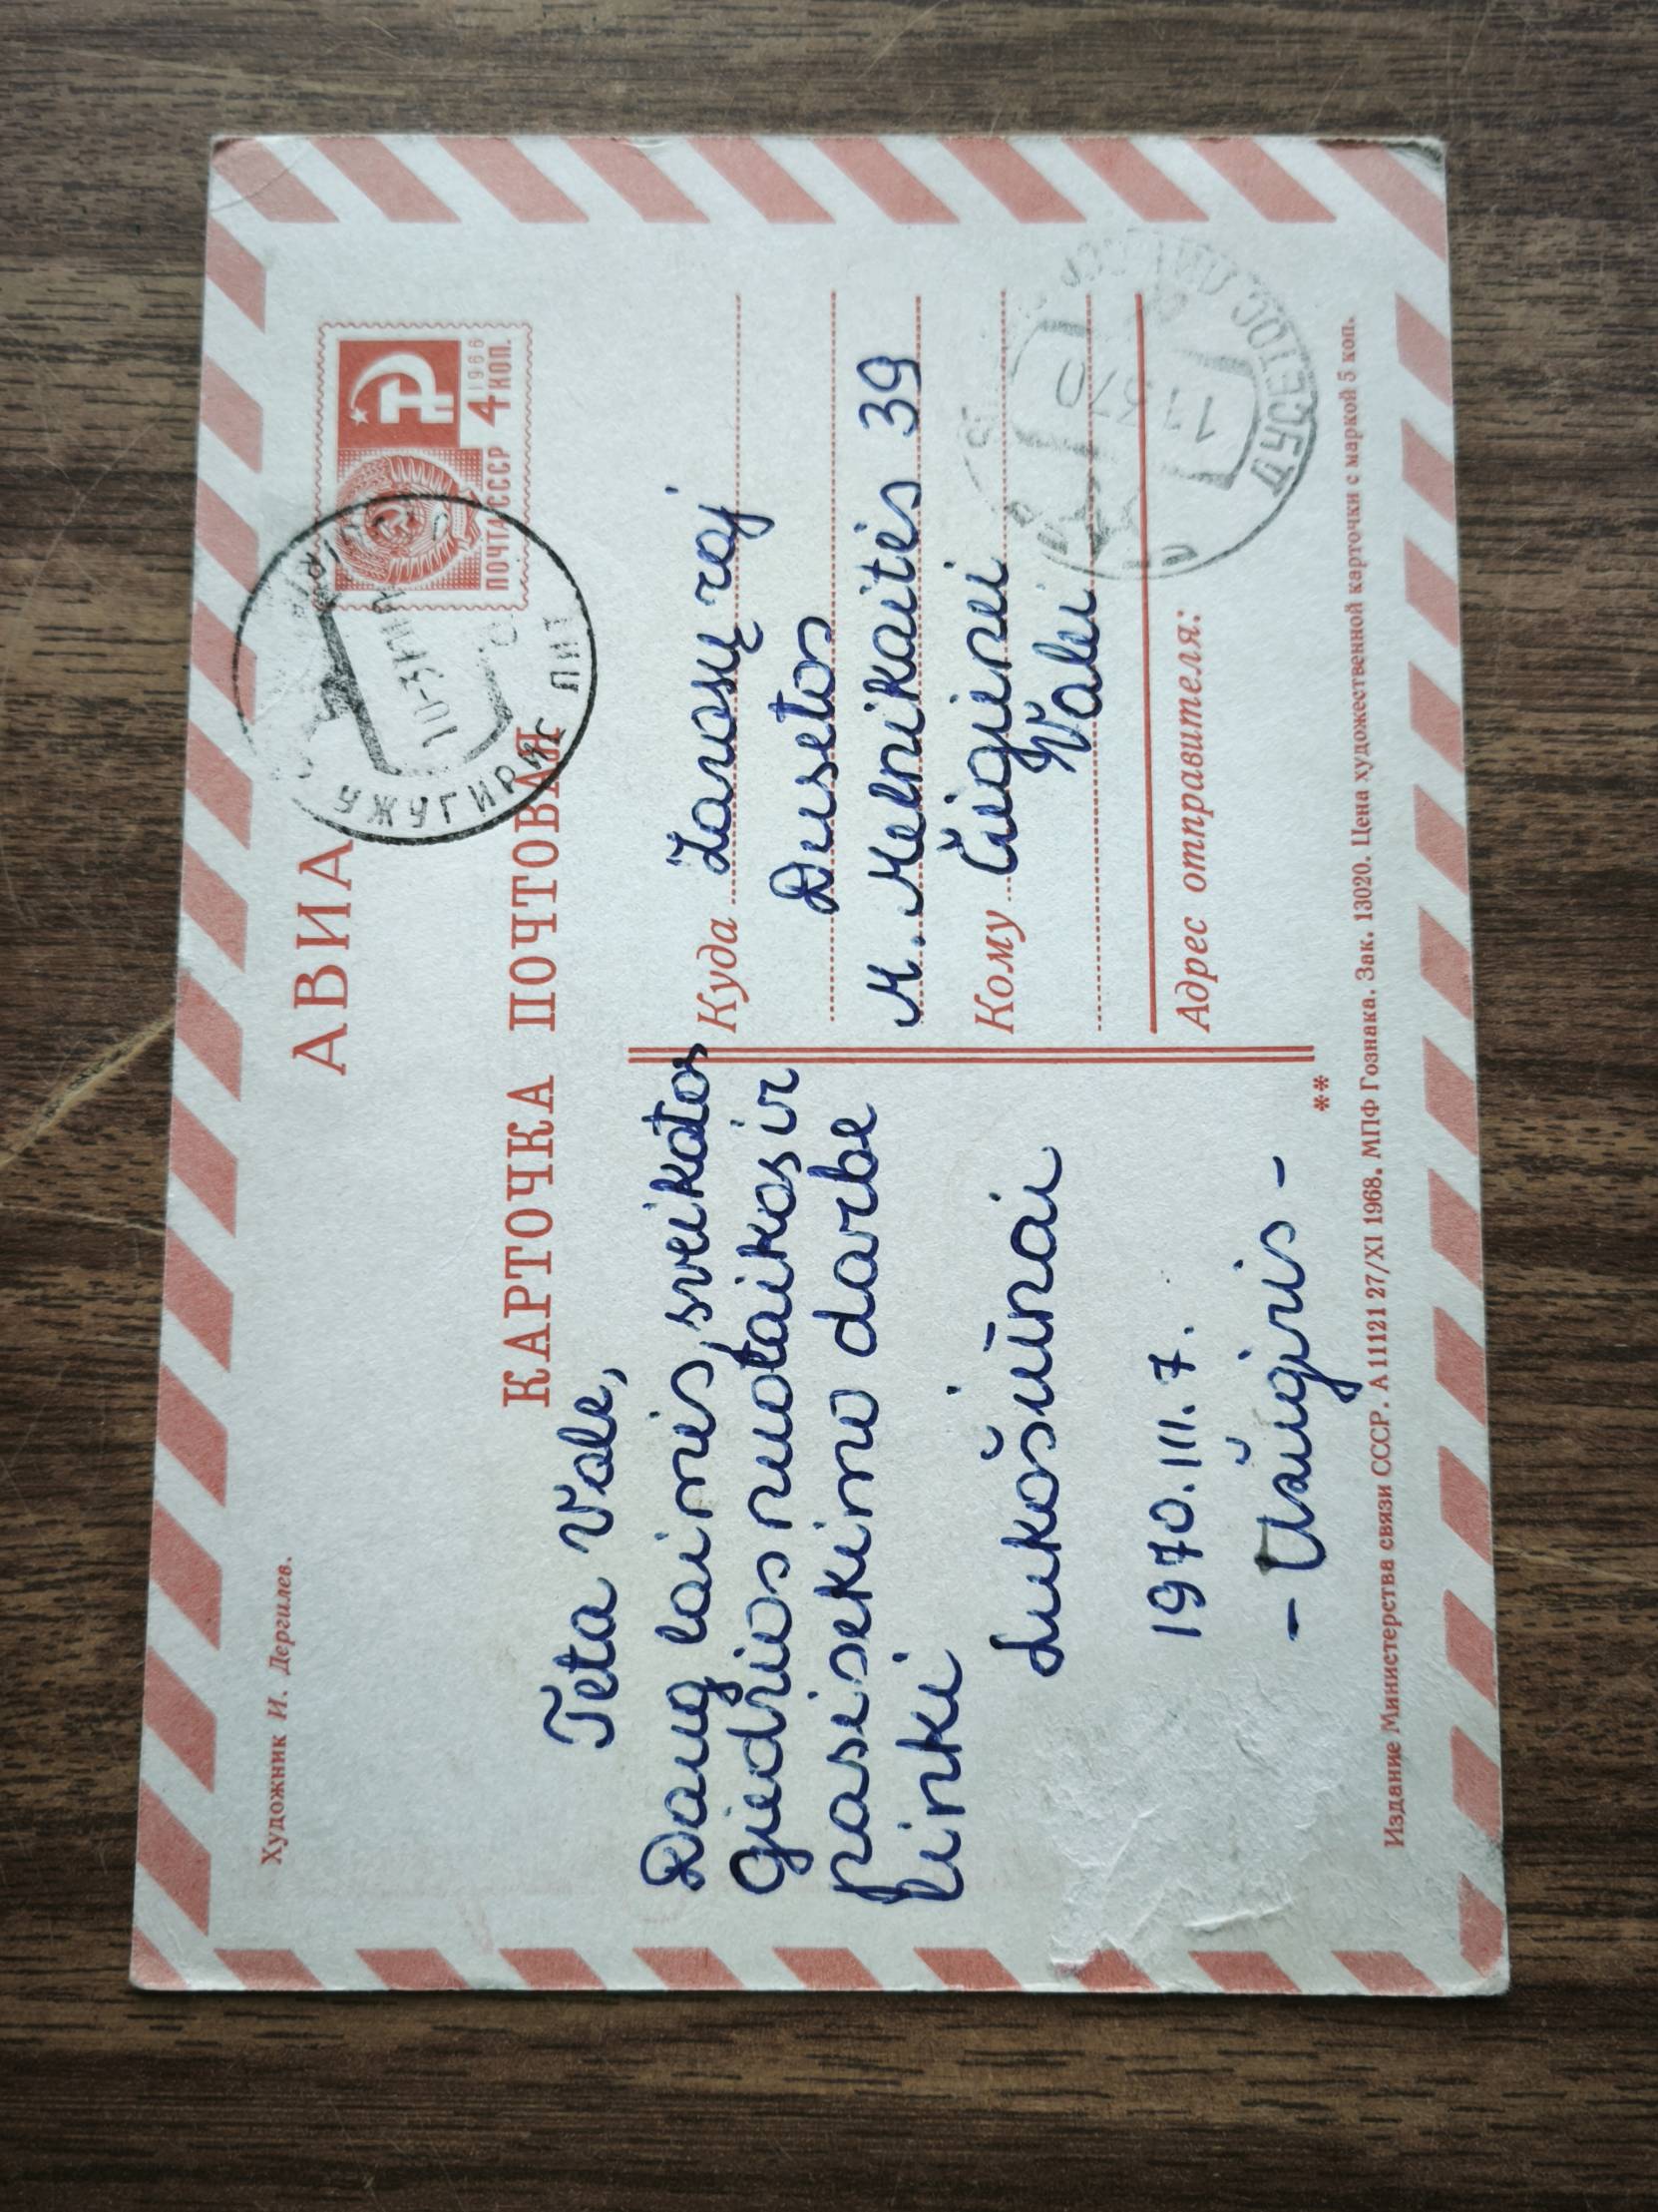 Художник И. Дергилев.
АВИА
ПОЧТА СССР
1966
4 КОП.
УЖУГИРИС ЛИТ
КАРТОЧКА ПОЧТОВАЯ
Teta Vale,
Daug laimės, sveikatos
Giedrios nuotaikos ir
pasisekimo darbe
linki
Lukošiūnai
1970.III.7.
- Užugiris -
Куда Zarasų raj
Dusetos
M. Melnikaitės 39
Кому
Valei
Адрес отправителя:
ДУСЕТОС
11 3 70
**
Издание Министерства связи СССР. А 11121 27/XI 1968. МПФ Гознака. Зак. 13020. Цена художественной карточки с маркой 5 коп.